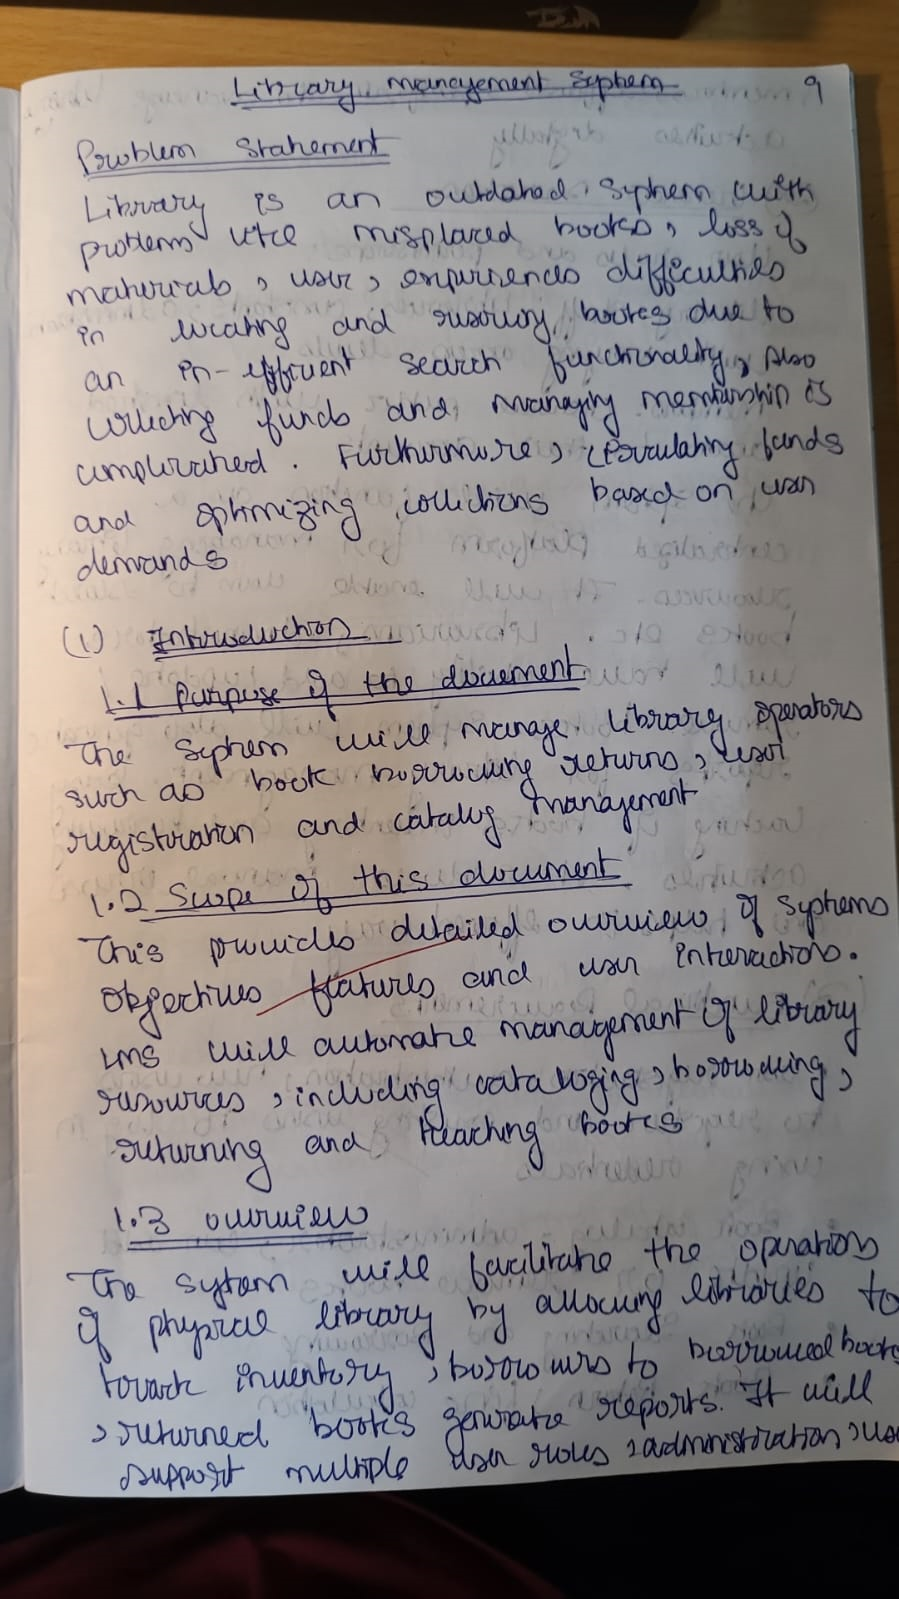 Library management System
9
Problem Statement
Library is an outdated system with
problems like misplaced books, loss of
materials, user, experiences difficulties
in locating and reserving books due to
an in-efficient search functionality, Also
collecting funds and managing membership is
complicated. Furthermore, circulating funds
and optimizing collections based on user
demands
(1) Introduction
1.1 Purpose of the document
The System will manage library operators
such as book borrowing returns, user
registration and catalog management
1.2 Scope of this document
This provides detailed overview of systems
objectives features and user interactions.
LMS will automate management of library
resources, including cataloging, borrowing,
returning and tracking books
1.3 overview
The sytem will facilitate the operations
of physical library by allowing libraries to
track inventory, borrowers to borrowed books
, returned books generate reports. It will
support multiple user roles, administration,